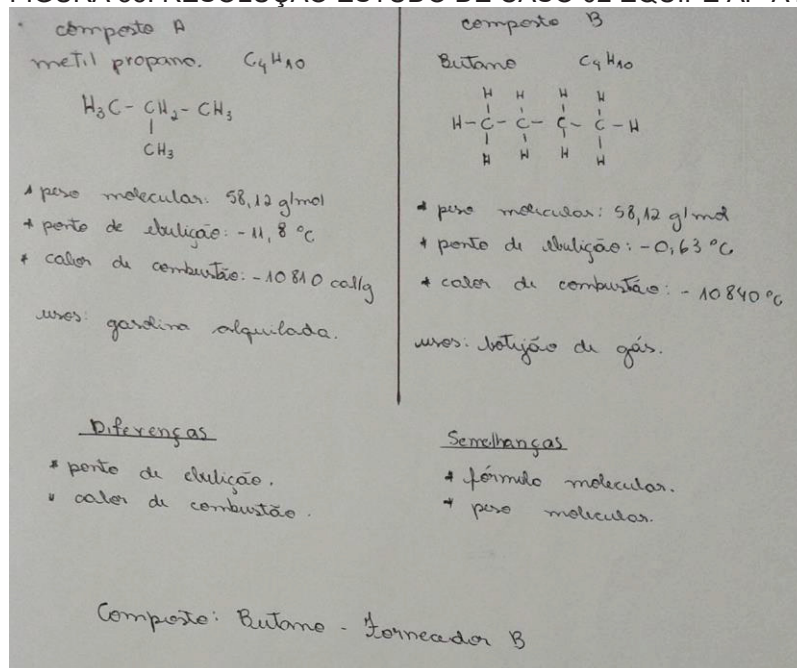 FIGURA
RESOLUÇÃO ESTUDO DE CASO 02 EQUIPE
composto A
metil propano. C4H10
H3C - CH2 - CH3
|
CH3
* peso molecular: 58,12 g/mol
* ponto de ebulição: -11,8 °C
* calor de combustão: -10810 cal/g
usos: gasolina alquilada.
composto B
Butano C4H10
H H H H
H - C - C - C - C - H
H H H H
* peso molecular: 58,12 g/mol
* ponto de ebulição: -0,63 °C
* calor de combustão: -10840 °C
usos: botijão de gás.
Diferenças
* ponto de ebulição.
* calor de combustão.
Semelhanças
* fórmula molecular.
* peso molecular.
Composto: Butano - Forneador B